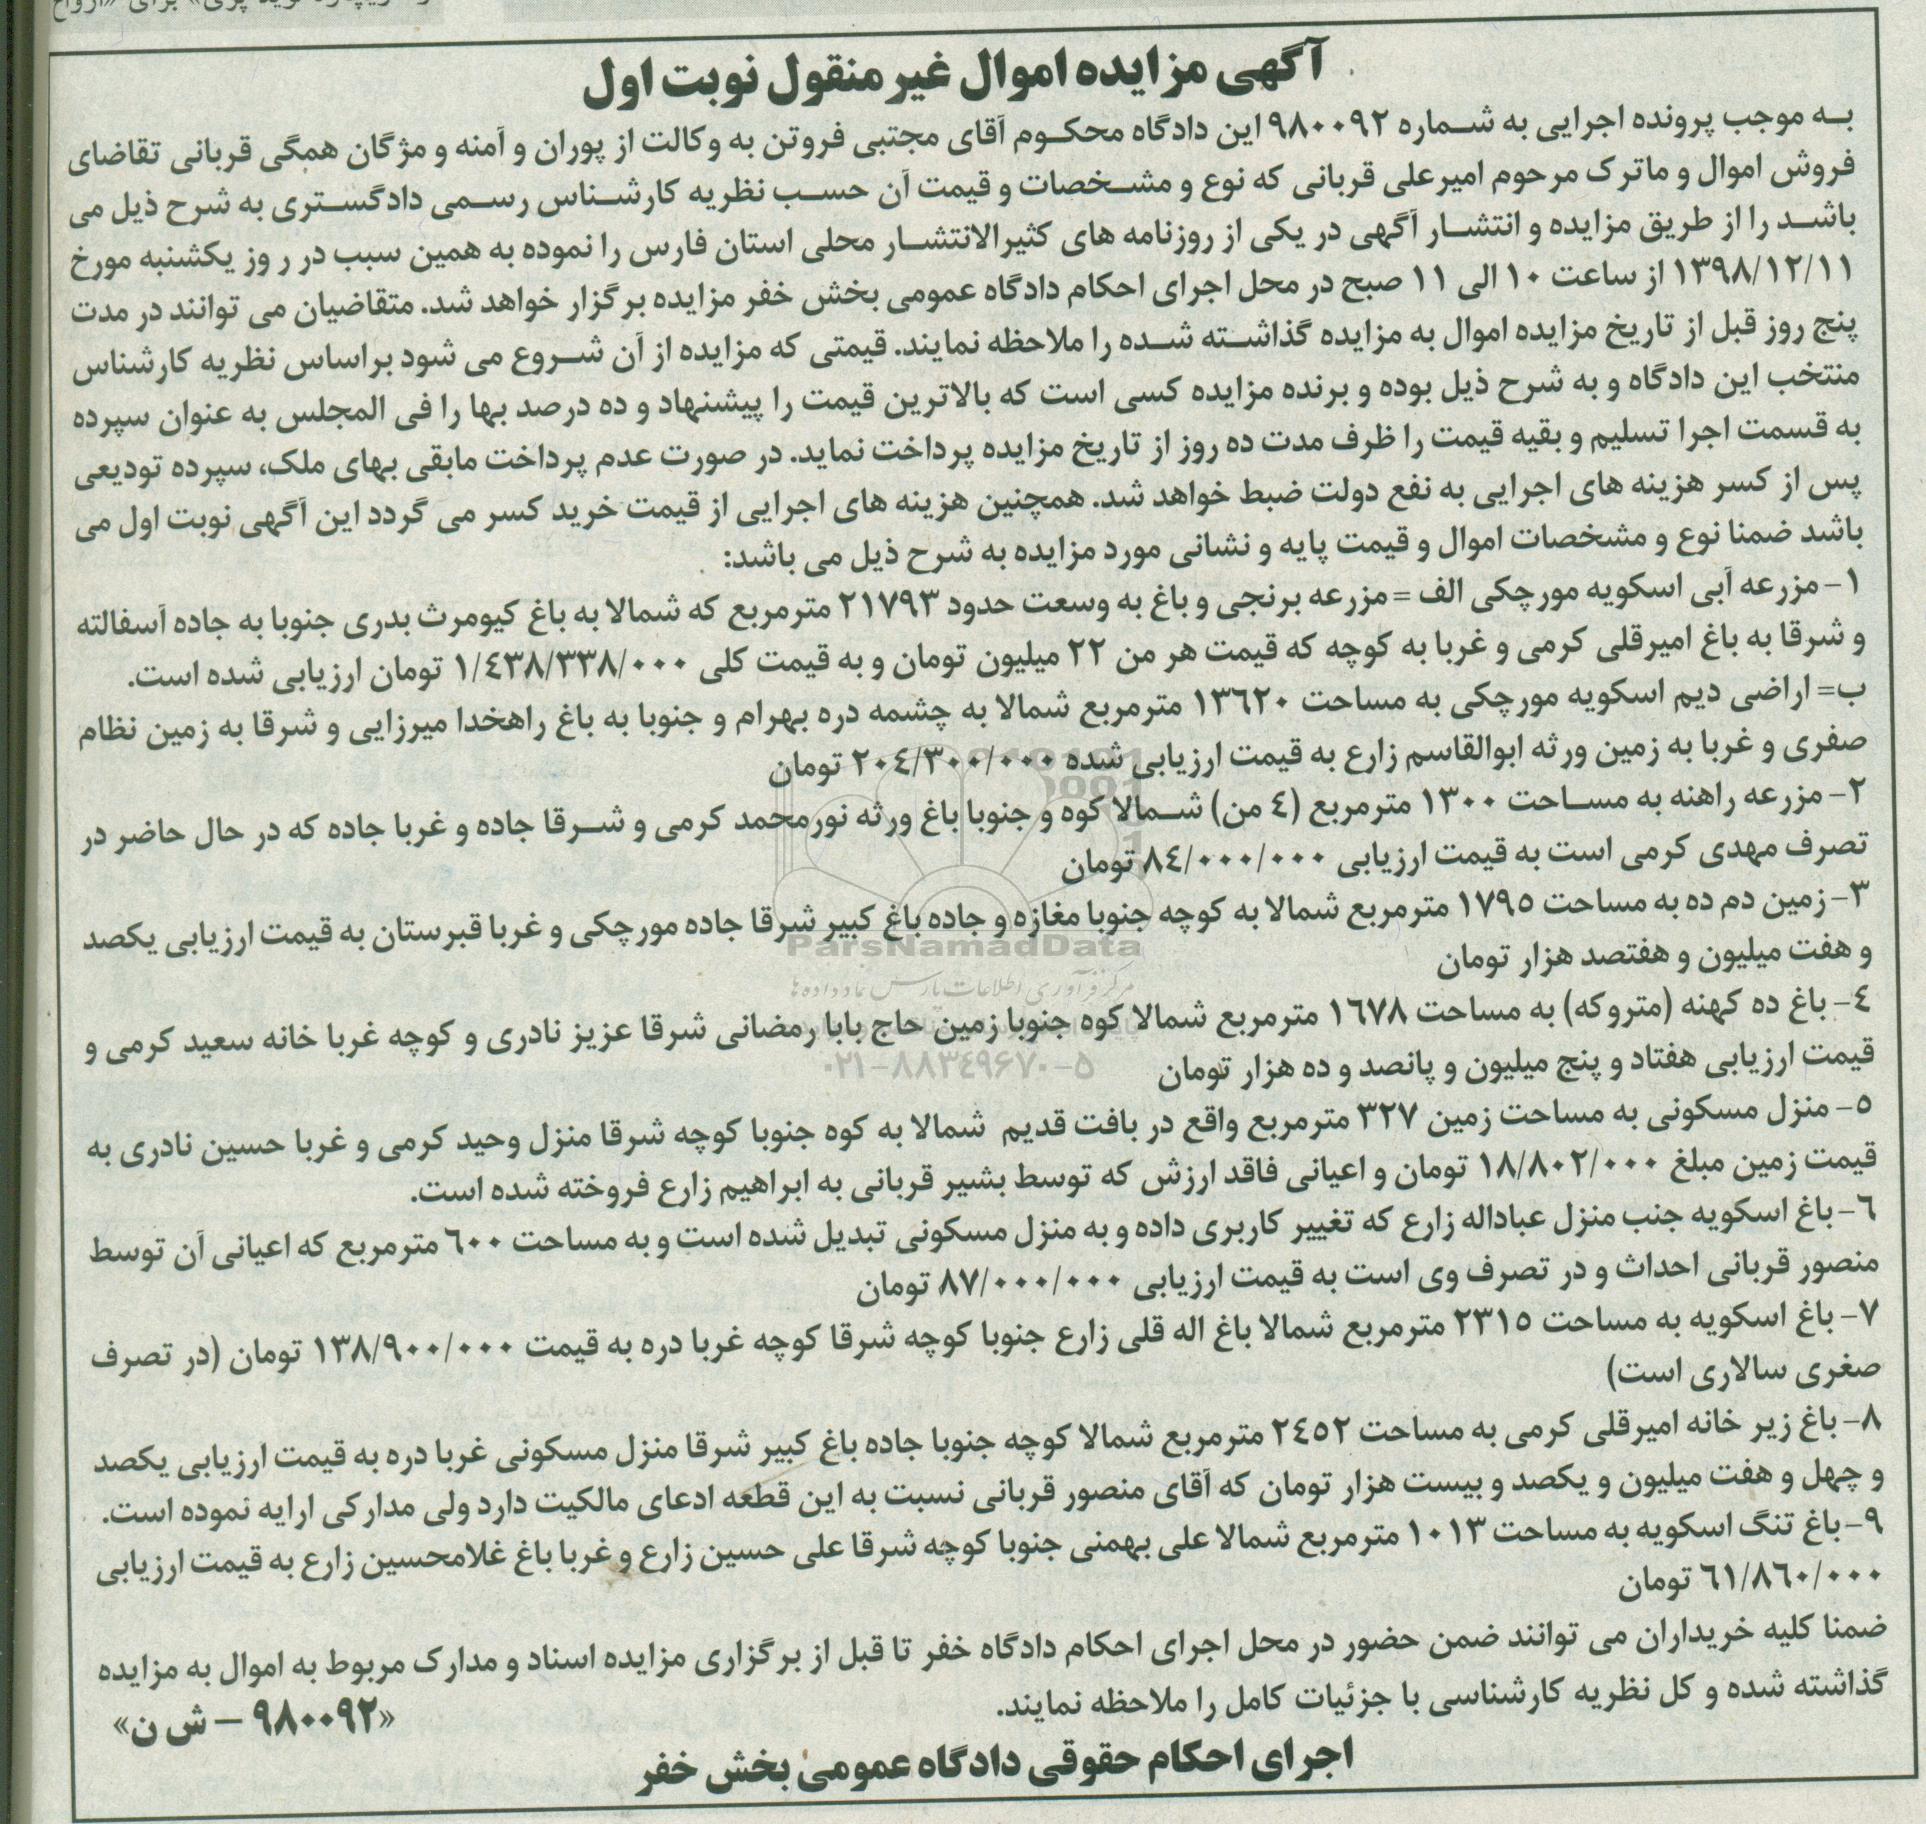 آگهی مزایده اموال غیر منقول نوبت اول
به موجب پرونده اجرایی به شماره ۹۸۰۰۹۲ این دادگاه محکوم آقای مجتبی فروتن به وکالت از پوران و آمنه و مژگان همگی قربانی تقاضای
فروش اموال و ماترک مرحوم امیرعلی قربانی که نوع و مشخصات و قیمت آن حسب نظریه کارشناس رسمی دادگستری به شرح ذیل می
باشد را از طریق مزایده و انتشار آگهی در یکی از روزنامه های کثیرالانتشار محلی استان فارس را نموده به همین سبب در ر وز یکشنبه مورخ
۱۳۹۸/۱۲/۱۱ از ساعت ۱۰ الی ۱۱ صبح در محل اجرای احکام دادگاه عمومی بخش خفر مزایده برگزار خواهد شد. متقاضیان می توانند در مدت
پنج روز قبل از تاریخ مزایده اموال به مزایده گذاشته شده را ملاحظه نمایند. قیمتی که مزایده از آن شروع می شود براساس نظریه کارشناس
منتخب این دادگاه و به شرح ذیل بوده و برنده مزایده کسی است که بالاترین قیمت را پیشنهاد و ده درصد بها را فی المجلس به عنوان سپرده
به قسمت اجرا تسلیم و بقیه قیمت را ظرف مدت ده روز از تاریخ مزایده پرداخت نماید. در صورت عدم پرداخت مابقی بهای ملک، سپرده تودیعی
پس از کسر هزینه های اجرایی به نفع دولت ضبط خواهد شد. همچنین هزینه های اجرایی از قیمت خرید کسر می گردد این آگهی نوبت اول می
باشد ضمنا نوع و مشخصات اموال و قیمت پایه و نشانی مورد مزایده به شرح ذیل می باشد:
۱- مزرعه آبی اسکویه مورچکی الف = مزرعه برنجی و باغ به وسعت حدود ۲۱۷۹۳ مترمربع که شمالا به باغ کیومرث بدری جنوبا به جاده آسفالته
و شرقا به باغ امیرقلی کرمی و غربا به کوچه که قیمت هر من ۲۲ میلیون تومان و به قیمت کلی ۱/٤۳۸/۳۳۸/۰۰۰ تومان ارزیابی شده است.
ب= اراضی دیم اسکویه مورچکی به مساحت ۱۳٦۲۰ مترمربع شمالا به چشمه دره بهرام و جنوبا به باغ راهخدا میرزایی و شرقا به زمین نظام
صفری و غربا به زمین ورثه ابوالقاسم زارع به قیمت ارزیابی شده ۲۰٤/۳۰۰/۰۰۰ تومان
۲- مزرعه راهنه به مساحت ۱۳۰۰ مترمربع (٤ من) شمالا کوه و جنوبا باغ ورثه نورمحمد کرمی و شرقا جاده و غربا جاده که در حال حاضر در
تصرف مهدی کرمی است به قیمت ارزیابی ۸٤/۰۰۰/۰۰۰ تومان
۳- زمین دم ده به مساحت ۱۷۹٥ مترمربع شمالا به کوچه جنوبا مغازه و جاده باغ کبیر شرقا جاده مورچکی و غربا قبرستان به قیمت ارزیابی یکصد
و هفت میلیون و هفتصد هزار تومان
ParsNamadData
مرکز فرآوری اطلاعات پارس نماد داده ها
٤- باغ ده کهنه (متروکه) به مساحت ۱٦۷۸ مترمربع شمالا کوه جنوبا زمین حاج بابا رمضانی شرقا عزیز نادری و کوچه غربا خانه سعید کرمی و
قیمت ارزیابی هفتاد و پنج میلیون و پانصد و ده هزار تومان
۰۲۱-۸۸۳٤۹۶۷۰-۵
٥- منزل مسکونی به مساحت زمین ۳۲۷ مترمربع واقع در بافت قدیم شمالا به کوه جنوبا کوچه شرقا منزل وحید کرمی و غربا حسین نادری به
قیمت زمین مبلغ ۱۸/۸۰۲/۰۰۰ تومان و اعیانی فاقد ارزش که توسط بشیر قربانی به ابراهیم زارع فروخته شده است.
٦- باغ اسکویه جنب منزل عباداله زارع که تغییر کاربری داده و به منزل مسکونی تبدیل شده است و به مساحت ٦۰۰ مترمربع که اعیانی آن توسط
منصور قربانی احداث و در تصرف وی است به قیمت ارزیابی ۸۷/۰۰۰/۰۰۰ تومان
۷- باغ اسکویه به مساحت ۲۳۱٥ مترمربع شمالا باغ اله قلی زارع جنوبا کوچه شرقا کوچه غربا دره به قیمت ۱۳۸/۹۰۰/۰۰۰ تومان (در تصرف
صغری سالاری است)
۸- باغ زیر خانه امیرقلی کرمی به مساحت ۲٤٥۲ مترمربع شمالا کوچه جنوبا جاده باغ کبیر شرقا منزل مسکونی غربا دره به قیمت ارزیابی یکصد
و چهل و هفت میلیون و یکصد و بیست هزار تومان که آقای منصور قربانی نسبت به این قطعه ادعای مالکیت دارد ولی مدارکی ارایه نموده است.
۹- باغ تنگ اسکویه به مساحت ۱۰۱۳ مترمربع شمالا علی بهمنی جنوبا کوچه شرقا علی حسین زارع و غربا باغ غلامحسین زارع به قیمت ارزیابی
٦۱/۸٦۰/۰۰۰ تومان
ضمنا کلیه خریداران می توانند ضمن حضور در محل اجرای احکام دادگاه خفر تا قبل از برگزاری مزایده اسناد و مدارک مربوط به اموال به مزایده
گذاشته شده و کل نظریه کارشناسی با جزئیات کامل را ملاحظه نمایند.
«۹۸۰۰۹۲ – ش ن»
اجرای احکام حقوقی دادگاه عمومی بخش خفر